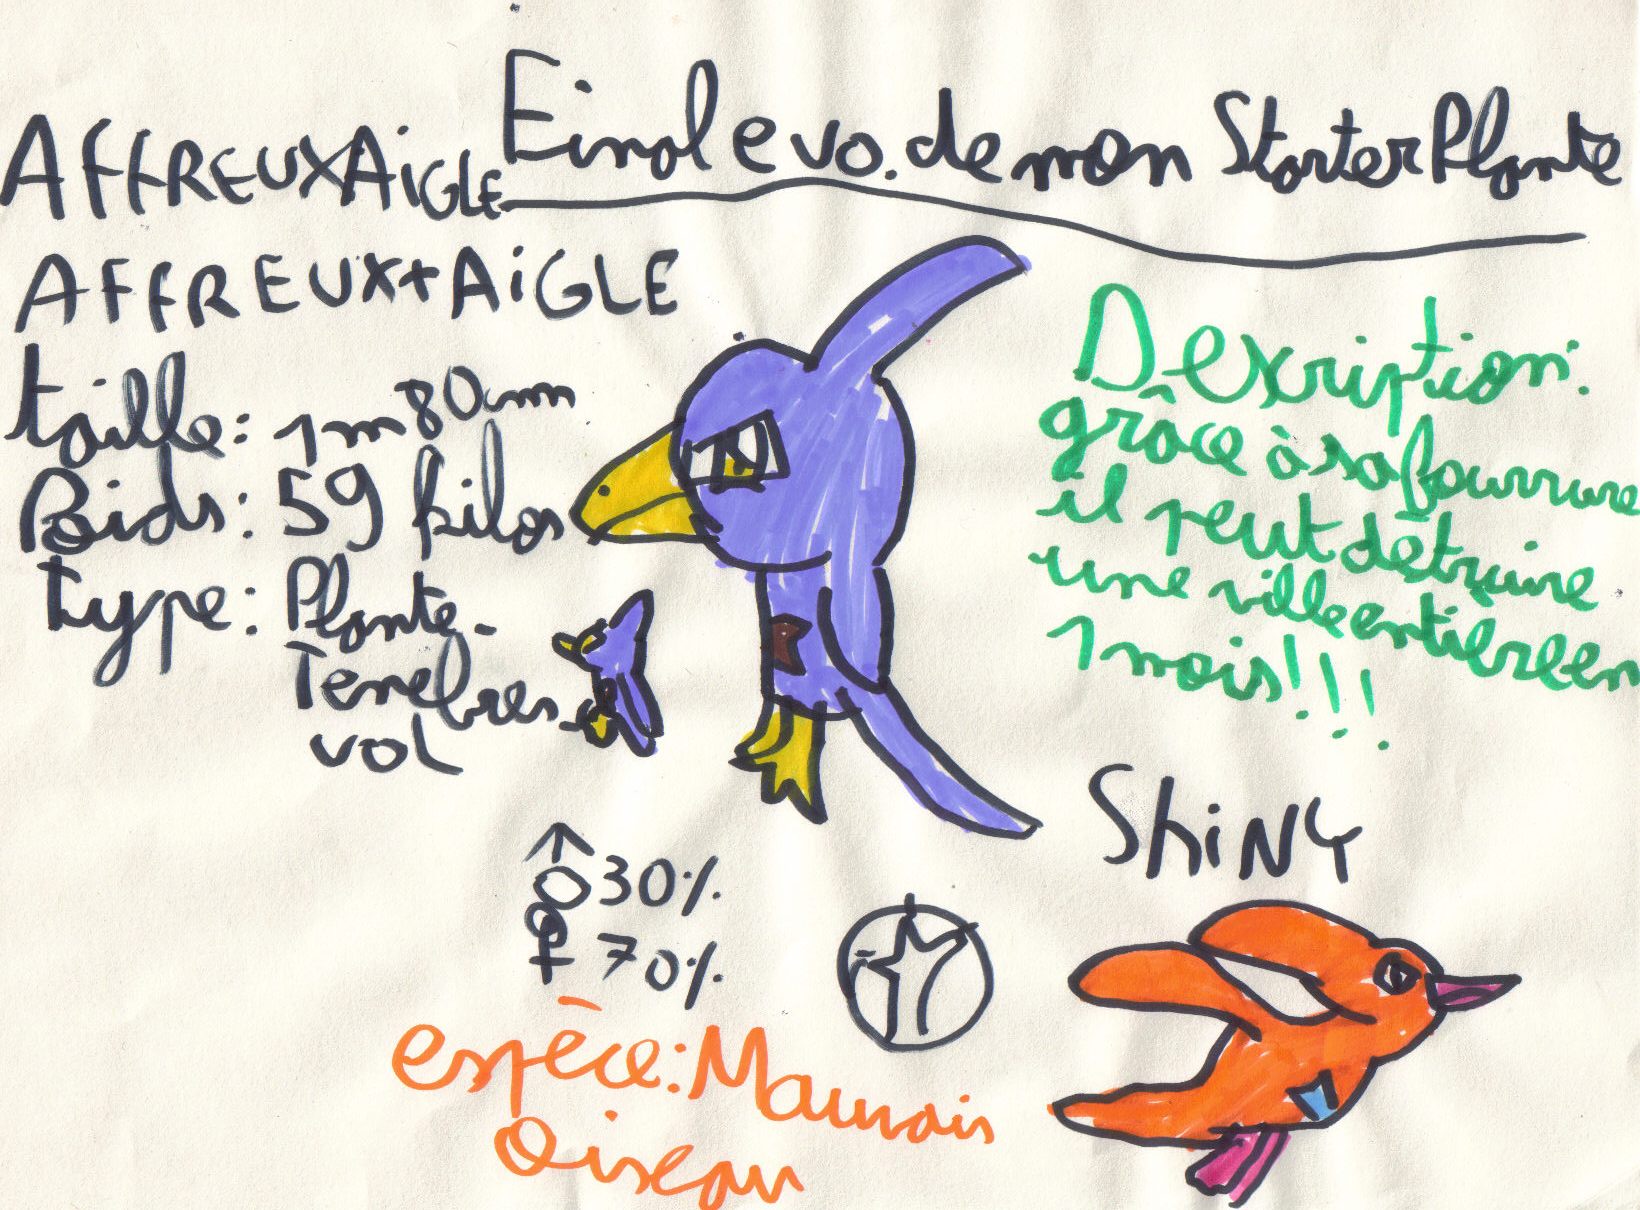 AFFREUXAiGLE Final evo. de mon Starter Plante
AFFREUX+AiGLE
taille: 1m80cm
Poids: 59 kilos
type: Plante-
Tenebres-
vol
Déxcription:
grâce à sa fourrure
il peut détruire
une ville entière en
1 mois!!!
♂ 30%
♀ 70%
ShiNY
espèce: Mauvais
Oiseau